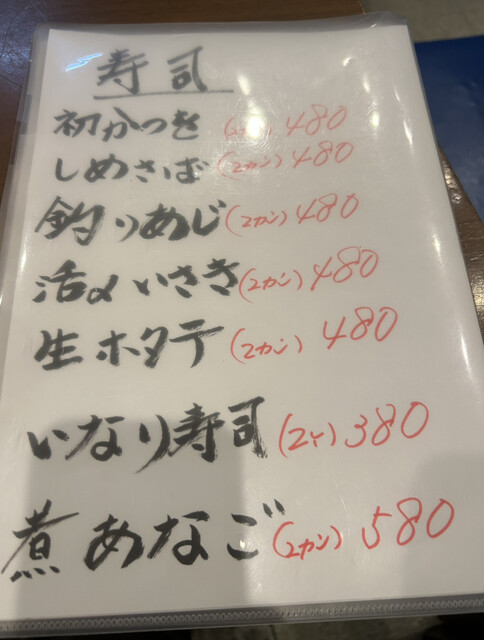 寿司
初かつを (2カン) 480
しめさば (2カン) 480
釣りあじ (2カン) 480
活〆いさき (2カン) 480
生ホタテ (2カン) 480
いなり寿司 (2ケ) 380
煮あなご (2カン) 580